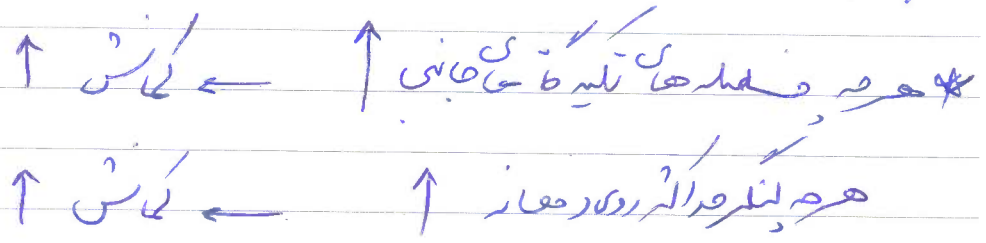 * هرچه فاصله های تکیه گاه های جانبی ↑ ← کمانش ↑
هرچه لنگر حداکثر روی دهانه ↑ ← کمانش ↑